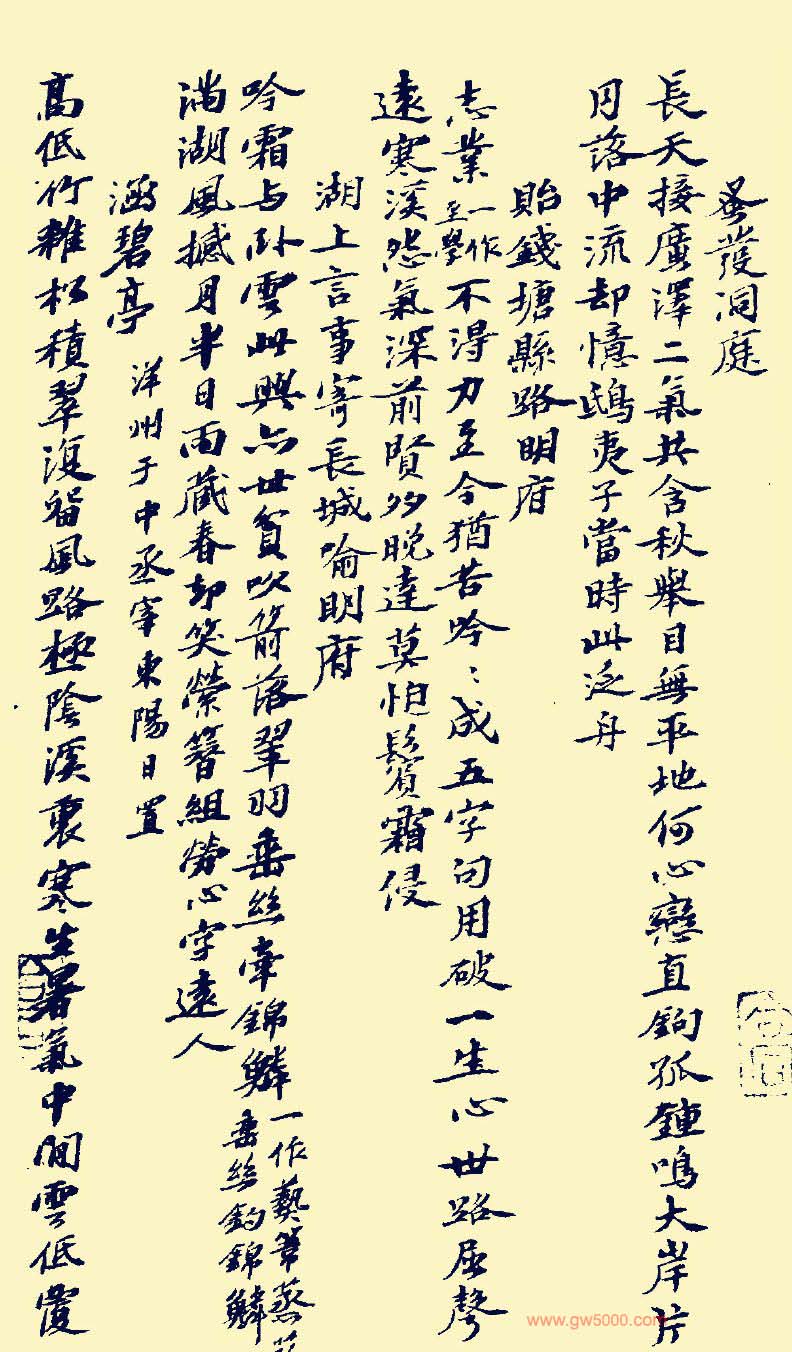 蚤發洞庭
長天接廣澤二氣共含秋舉目無平地何心戀直鉤孤鐘鳴大岸片
月落中流却憶鴟夷子當時此泛舟
貽錢塘縣路明府
志業一作至學不得力至今猶苦吟〻成五字句用破一生心世路屈聲
遠寒溪怨氣深前賢多晚達莫怕鬢霜侵
湖上言事寄長城喻明府
吟霜与卧雲此興亦甘貧吹箭落翠羽垂絲牽錦鱗一作藝葦蒸垂絲釣錦鱗
滿湖風撼月半日雨藏春却笑縈簪組勞心字遠人
涵碧亭 洋州于中丞宰東陽日置
高低竹雜松積翠復留風路極陰溪裏寒生暑氣中閒雲低覆
www.gw5000.com